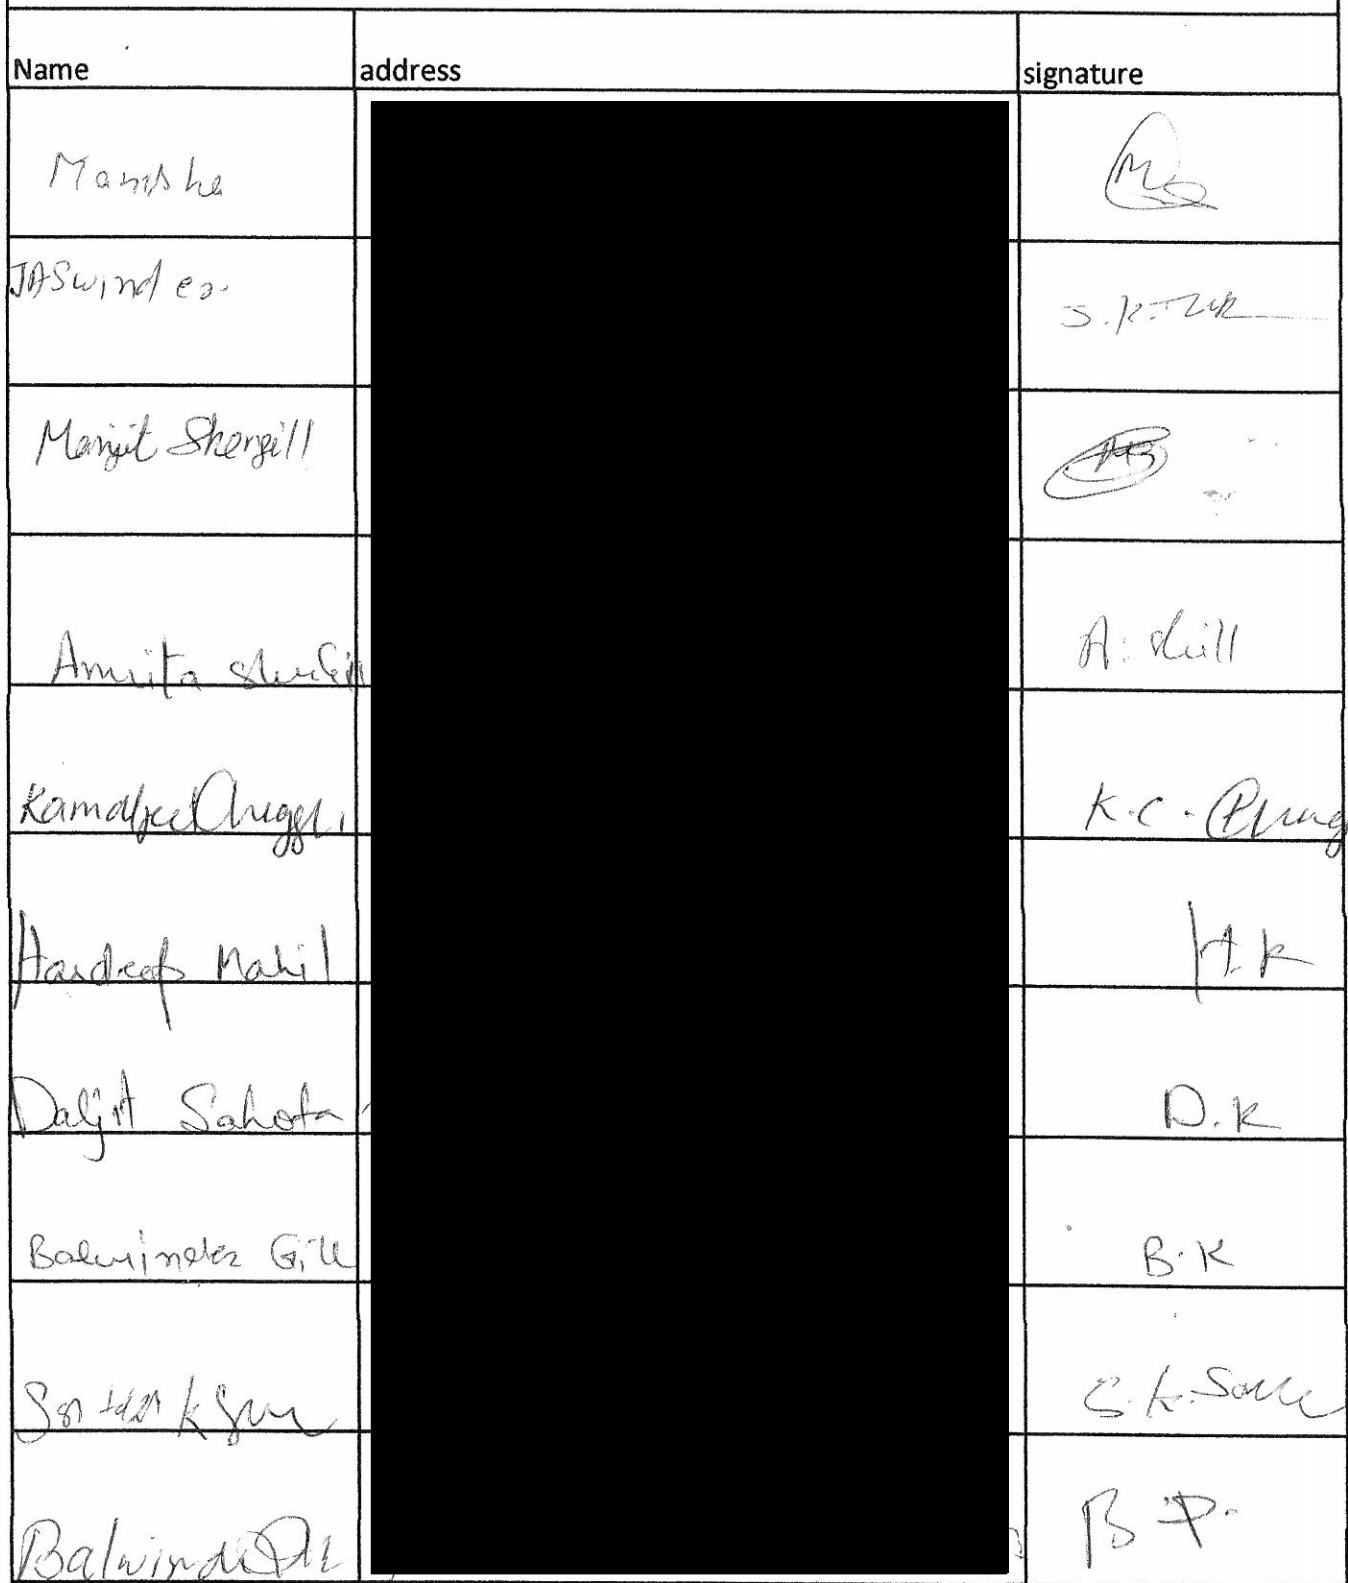 Name address signature
Manisha
JASwinder
S.K.
Manjit Shergill
Amrita Shergill
A. Shill
Kamaljeet
K.C.
Hardeep Mahil
H.K
Daljit Sahota
D.K
Balwinder Gill
B.K
K
S.K.
Balwinder
B P.